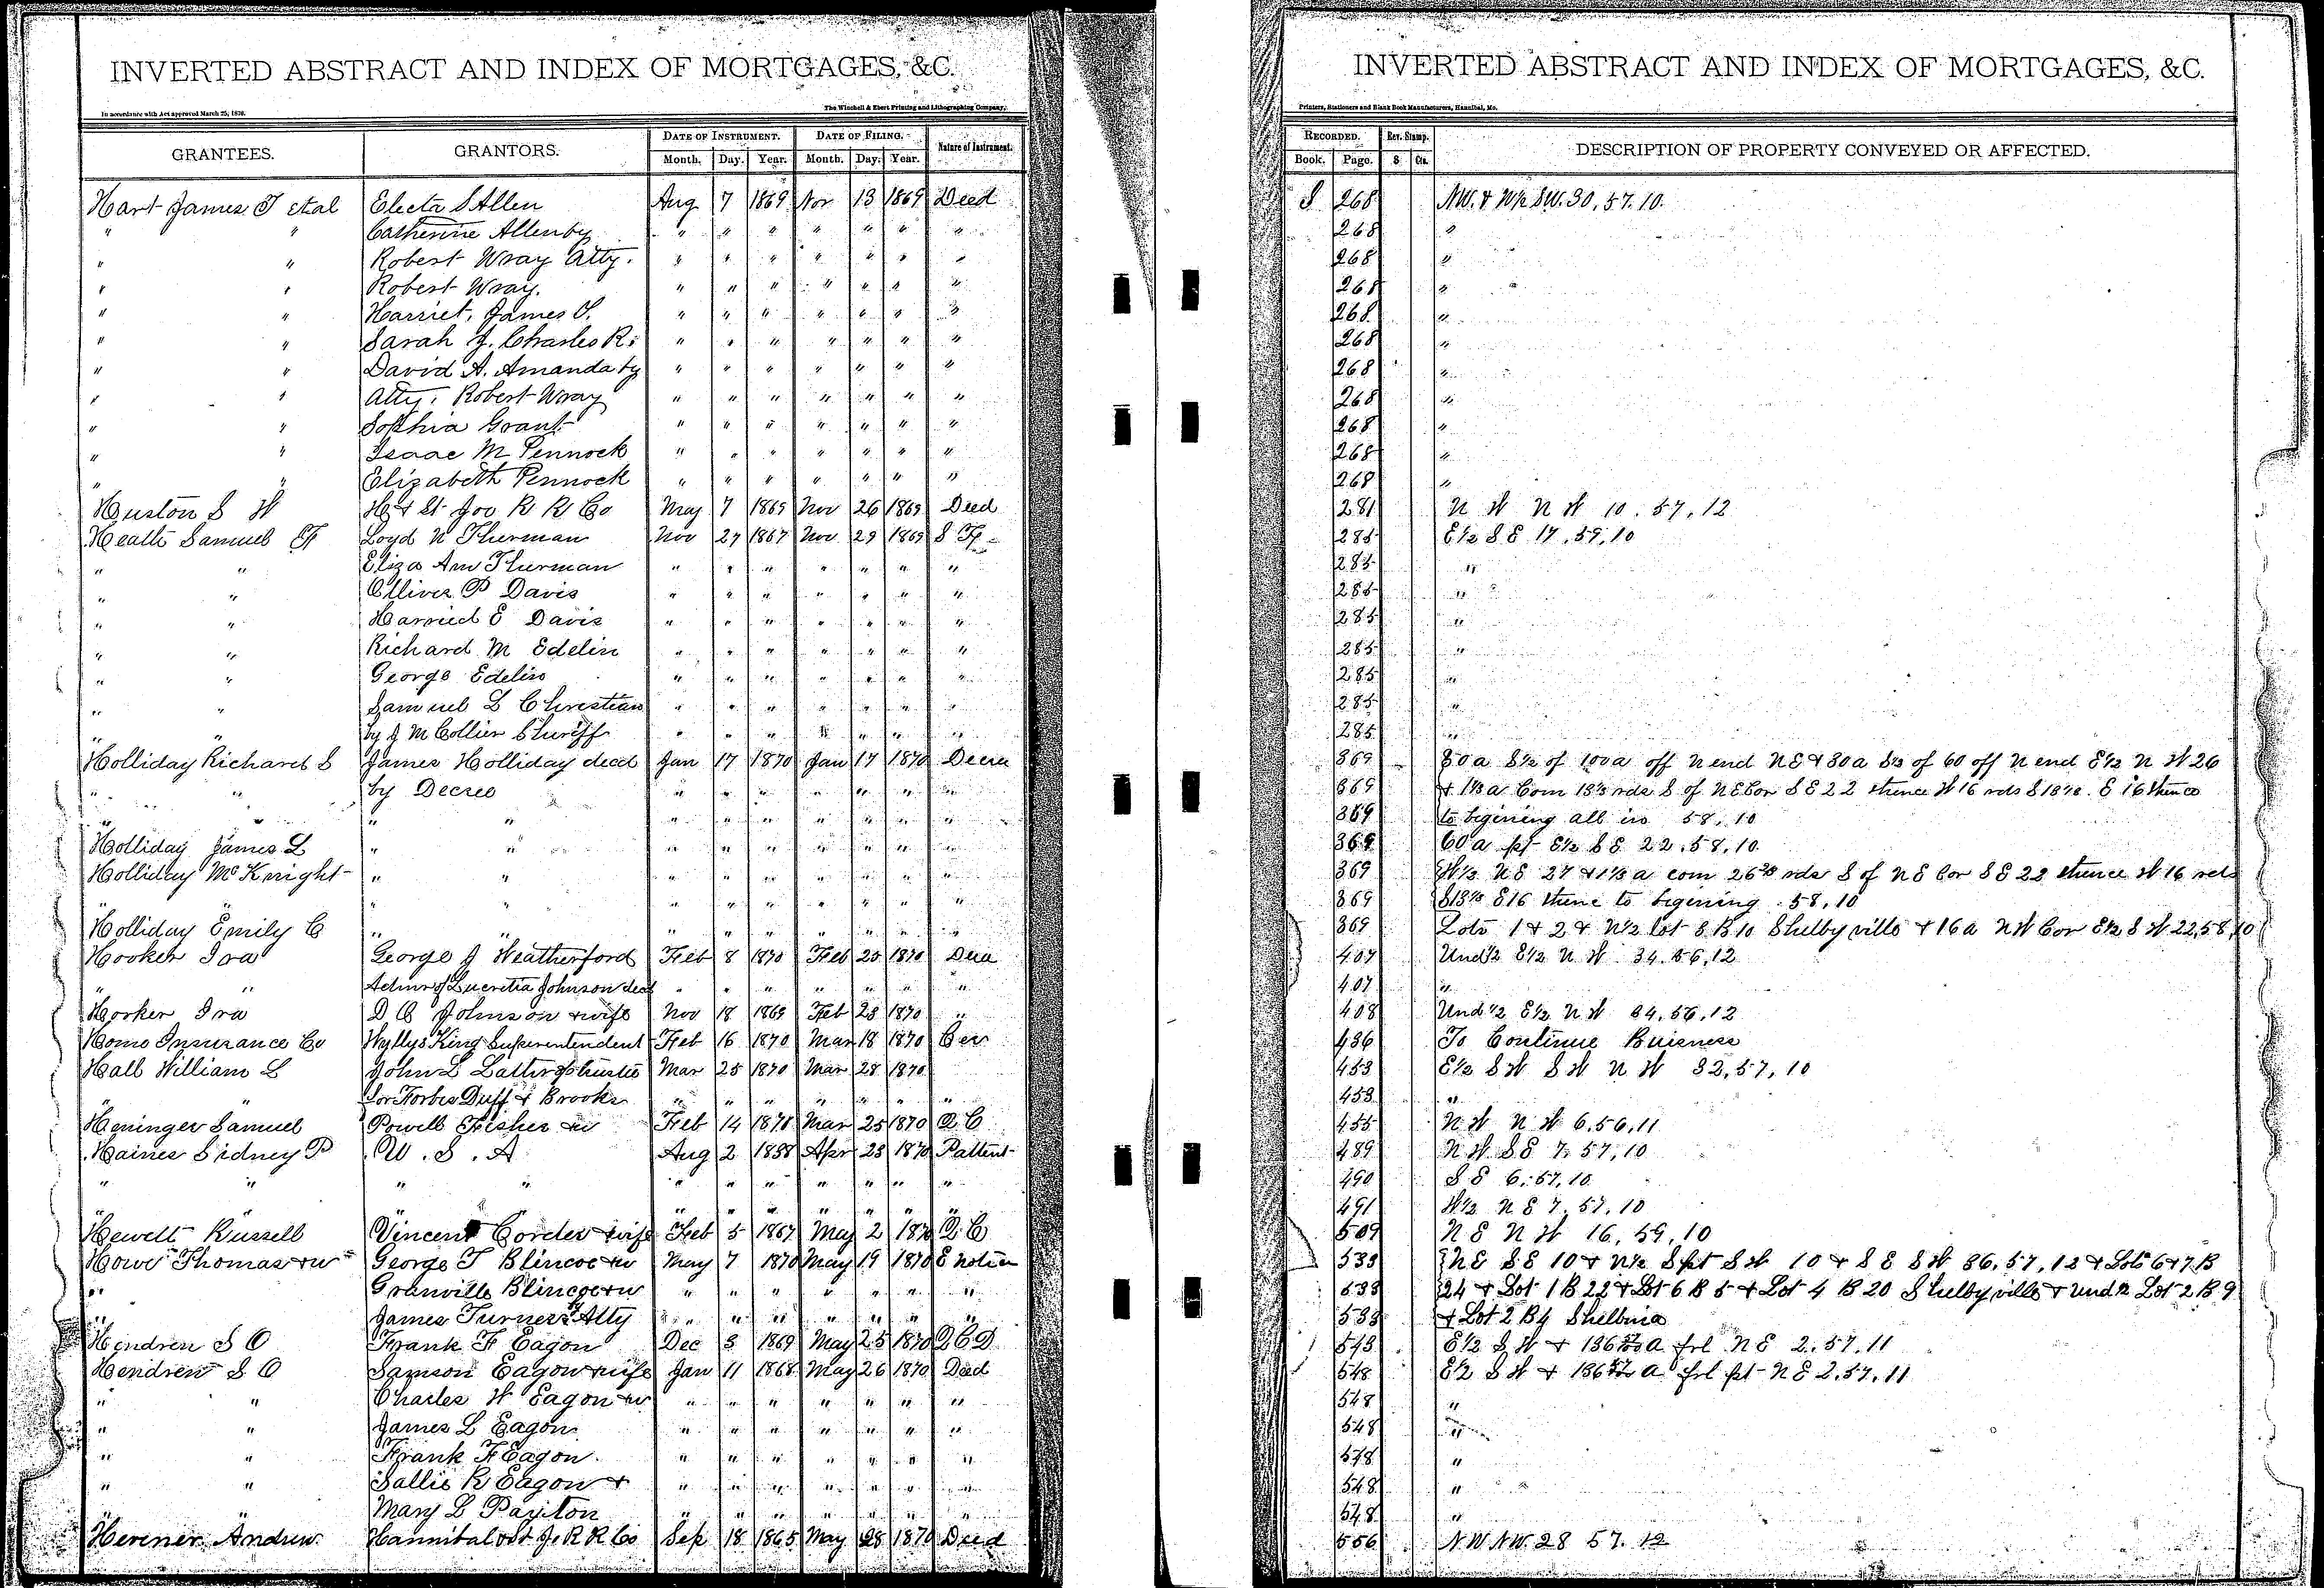 INVERTED ABSTRACT AND INDEX OF MORTGAGES, &C.
In accordance with Act approved March 25, 1870.
The Winchell & Ebert Printing and Lithographing Company,
GRANTEES. GRANTORS. DATE OF INSTRUMENT. DATE OF FILING. Nature of Instrument.
Month. Day. Year. Month. Day. Year.
Hart James T et al Electa S Allen Aug 7 1869 Nov 13 1869 Deed
" " Catherine Allen by " " " " " " "
" " Robert Wray Atty. " " " " " " "
" " Robert Wray. " " " " " " "
" " Harriet, James S. " " " " " " "
" " Sarah J. Charles R. " " " " " " "
" " David A. Amanda by " " " " " " "
" " Atty. Robert Wray " " " " " " "
" " Sophia Grant " " " " " " "
" " Isaac M Pennock " " " " " " "
" " Elizabeth Pennock " " " " " " "
Huston S W H & St Joe R R Co May 7 1869 Nov 26 1869 Deed
Heath Samuel F Loyd N Thurman Nov 27 1867 Nov 29 1869 S
" " Eliza Ann Thurman " " " " " " "
" " Olliver P Davis " " " " " " "
" " Harried E Davis " " " " " " "
" " Richard M Edelin " " " " " " "
" " George Edelin " " " " " " "
" " Samuel L Christian " " " " " " "
" " by J M Collier Sheriff " " " " " " "
Holliday Richard S James Holliday decd Jan 17 1870 Jan 17 1870 Decree
" " by Decree " " " " " " "
" " " " " " " " " " "
Holliday James L " " " " " " " " "
Holliday McKnight " " " " " " " " "
" " " " " " " " " " "
Holliday Emily C " " " " " " " " "
Hooker Ira George J Weatherford Feb 8 1870 Feb 25 1870 Deed
" " Admr of Lucretia Johnson decd " " " " " " "
Hooker Ira D C Johnson & wife Nov 18 1869 Feb 28 1870 "
Home Insurance Co Wyllys King Superintendent Feb 16 1870 Mar 18 1870 Cer
Hall William L John L Lathrop trustee Mar 25 1870 Mar 28 1870
" " for Forbes Duff & Brooks " " " " " "
Heninger Samuel Powell Fisher & w Feb 14 1870 Mar 25 1870 Q C
Haines Sidney P U. S. A Aug 2 1858 Apr 23 1870 Pattent
" " " " " " " " " " "
" " " " " " " " "
Hewett Russell Vincent Corder & wife Feb 5 1867 May 2 1870 Q C
Howe Thomas & w George T Blincoe & w May 7 1870 May 19 1870 E notice
" " Granville Blincoe & w " " " " " " "
" " James Turner by Atty " " " " " " "
Hendren S O Frank F Eagon Dec 3 1869 May 25 1870 Q C D
Hendren S O Samson Eagon & wife Jan 11 1868 May 26 1870 Deed
" " Charles W Eagon & w " " " " " " "
" " James L Eagon " " " " " " "
" " Frank F Eagon. " " " " " " "
" " Sallie R Eagon & " " " " " " "
" " Mary L Payton " " " " " " "
Herener Andrew Hannibal & St J. R R Co Sep 18 1865 May 28 1870 Deed
INVERTED ABSTRACT AND INDEX OF MORTGAGES, &C.
Printers, Stationers and Blank Book Manufacturers, Hannibal, Mo.
RECORDED. Rev. Stamp. DESCRIPTION OF PROPERTY CONVEYED OR AFFECTED.
Book. Page. $ Cts.
S 268 NW. & W½ SW. 30, 57. 10.
268 "
268 "
268 "
268 "
268 "
268 "
268 "
268 "
268 "
268 "
281 N W N W 10. 57, 12
285 E½ S E 17, 59, 10
285 "
285 "
285 "
285 "
285 "
285 "
285 "
369 80 a S½ of 100 a off N end N E & 30 a S½ of 60 off N end E½ N W 26
369 & 1⅓ a Com 13⅓ rds S of N E Cor S E 22 thence W 16 rds S 13⅓ E 16 thence
369 to begining all in 58, 10
369 60 a pt E½ S E 22, 58, 10
369 W½ N E 27 & 1⅓ a com 26⅔ rds S of N E Cor S E 22 thence W 16 rds
369 S 13⅓ E 16 thence to begining 58, 10
369 Lots 1 & 2 & N½ lot 8 B 10 Shelbyville & 16 a N W Cor E½ S W 22, 58, 10
407 Und ½ E½ N W 34. 56, 12
407 "
408 Und ½ E½ N W 34, 56, 12
436 To Continue Buisness
453 E½ S W S W N W 32, 57, 10
453 "
455 N W N W 6, 56, 11
489 N W S E 7. 57, 10
490 S E 6, 57, 10
491 W½ N E 7, 57, 10
509 N E N W 16, 59, 10
533 N E S E 10 & N½ S pt S W 10 & S E S W 36, 57, 12 & Lots 6 & 7 B
533 24 & Lot 1 B 22 & Lot 6 B 5 & Lot 4 B 20 Shelbyville & und ½ Lot 2 B 9
533 & Lot 2 B 4 Shelbina
543 E½ S W & 136 a frl N E 2. 57. 11
548 E½ S W & 136 a frl pt N E 2, 57, 11
548 "
548 "
548 "
548 "
548 "
556 N. W N W. 28 57. 12